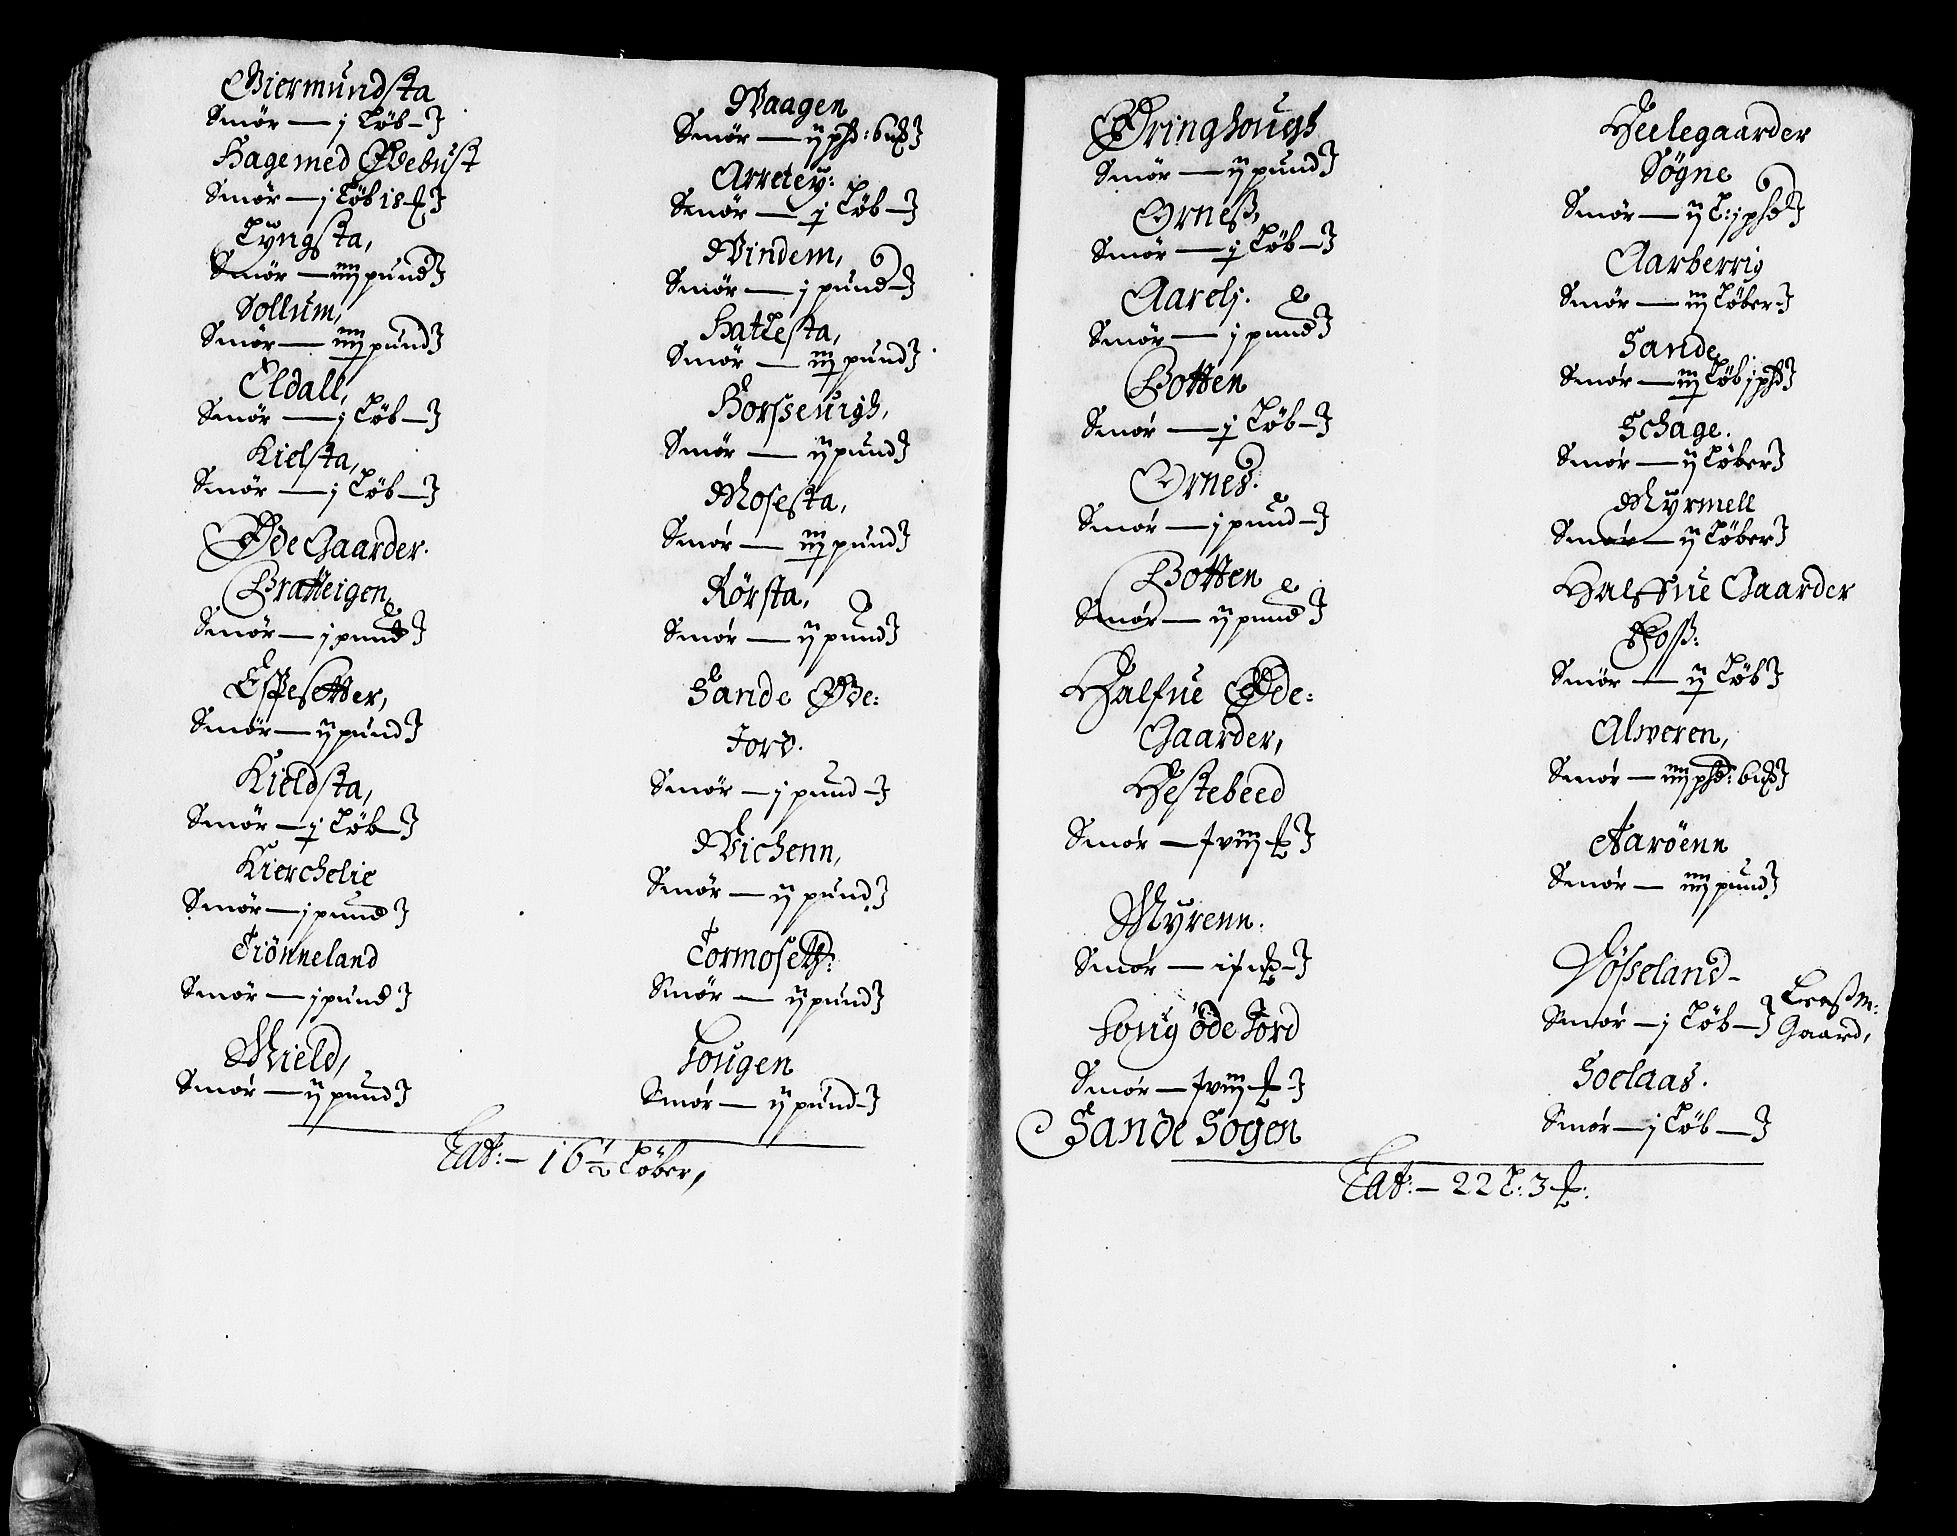 Giermundsta
Smör — j Löb —
Hage med Ødebust
Smör — j Löb 18
Lyngsta,
Smör — iiij pund
Sollum,
Smör — iiij pund
Eldall,
Smör — j Löb —
Kielsta,
Smör — j Löb —
Øde Gaarder.
Bratteigen,
Smör — j pund
Espesetter,
Smör — ij pund
Kieldsta,
Smör — j Löb —
Kierchelie
Smör — j pund
Tiönneland
Smör — j pund
Mield,
Smör — ij pund
Waagen
Smör — ij phd: 6
Arretey:
Smör — j Löb —
Windem,
Smör — j pund —
Hatlesta,
Smör — iij pund
Horsseuigh,
Smör — ij pund
Mosesta,
Smör — iij pund
Rörsta,
Smör — ij pund
Sande Øde:
Jord.
Smör — j pund —
Wichenn,
Smör — ij pund
Tormosett:
Smör — ij pund
Tougen
Smör — ij pund —
Lat: — 16 1/2 Löber,
Øringhough
Smör — ij pund
Orness,
Smör — j Löb —
Aarelj.
Smör — j pund
Botten
Smör — j Löb —
Ornes.
Smör — j pund —
Botten
Smör — ij pund
Halfue Øde:
Gaarder,
Hestebeed
Smör —
Myrenn.
Smör —
Houg öde Jord
Smör —
Sande Sogen
Heelegaarder
Sögne
Smör — ij L: j phd
Aarberrig
Smör — iij Löber —
Sande,
Smör — iij Löb j phd
Schage.
Smör — ij Löber
Myrmell
Smör — ij Löber
Halffue Gaarder
Foss:
Smör — ij Löb
Alweren,
Smör — iiij phd: 6
Aaröenn
Smör — iiij pund
Vösseland —
Smör — j Löb — Leessm: Gaard,
Soelaas.
Smör — j Löb —
Lat: — 22 L: 3